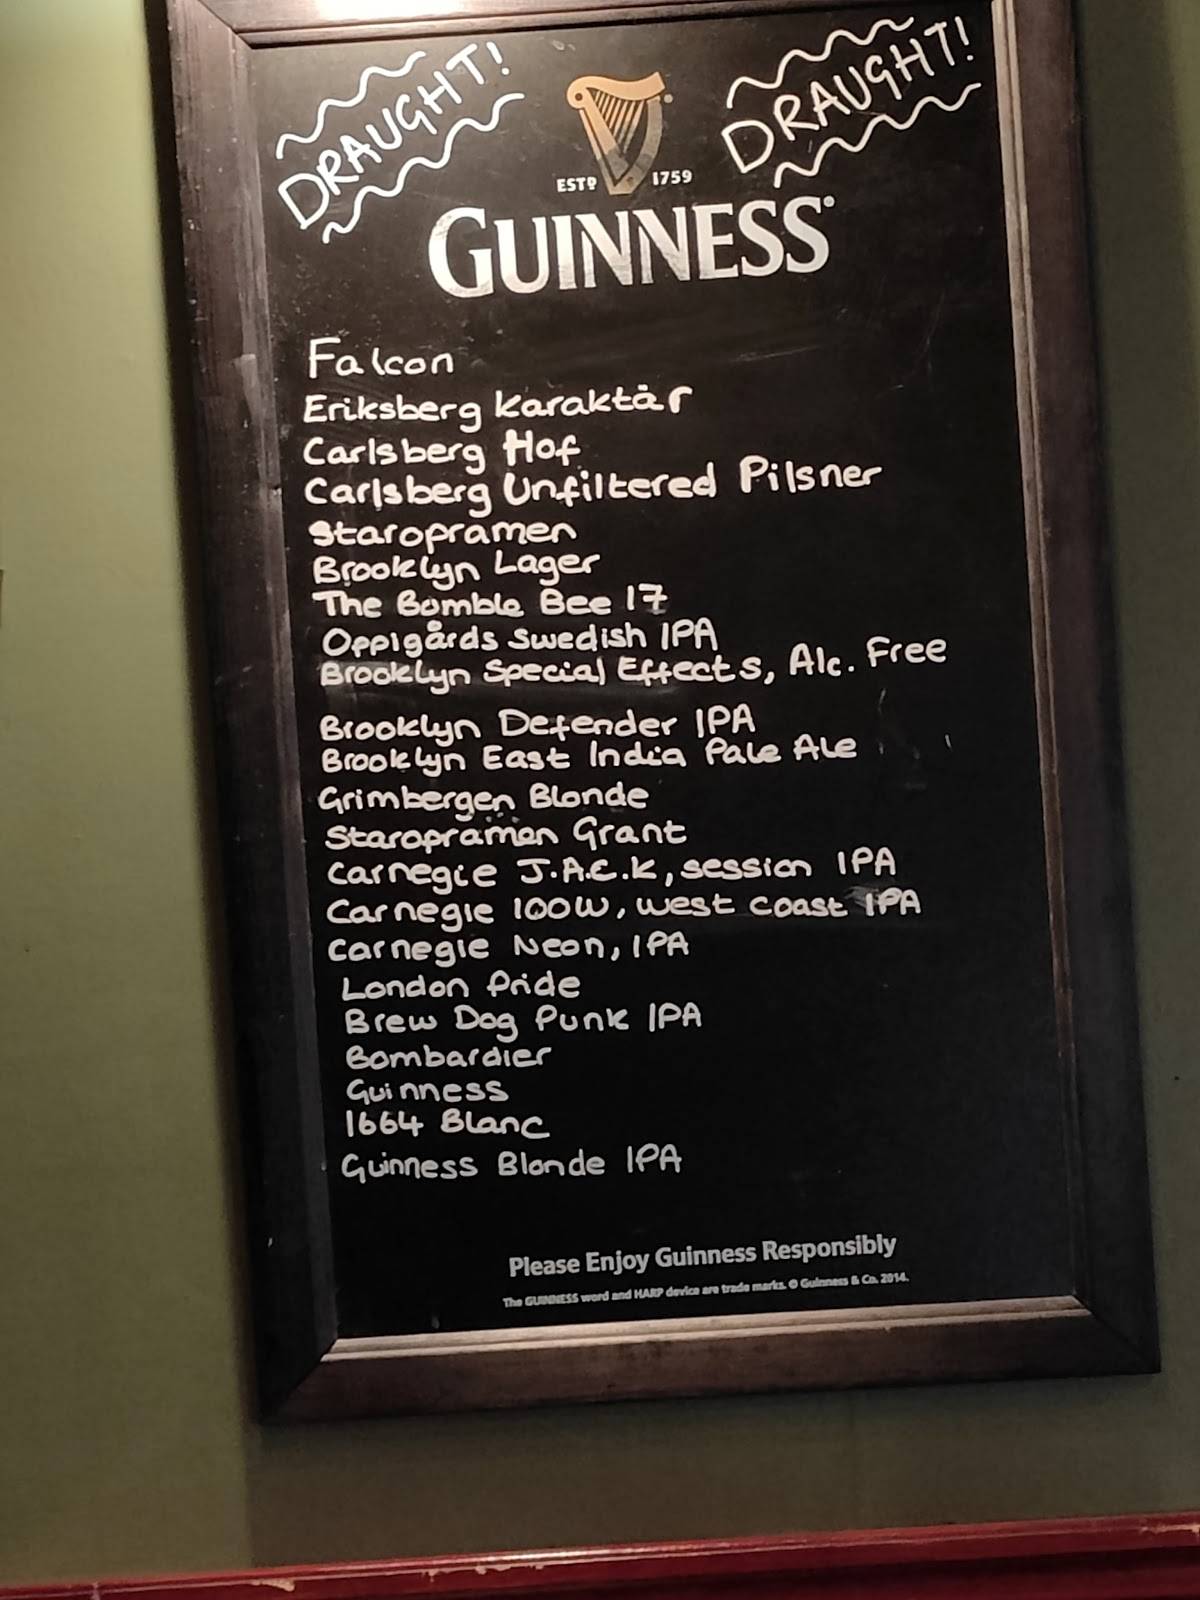 DRAUGHT!
DRAUGHT!
ESTD 1759
GUINNESS
Falcon
Eriksberg Karaktär
Carlsberg Hof
Carlsberg Unfiltered Pilsner
Staropramen
Brooklyn Lager
The Bumble Bee 17
Oppigårds Swedish IPA
Brooklyn Special Effects, Alc. Free
Brooklyn Defender IPA
Brooklyn East India Pale Ale
Grimbergen Blonde
Staropramen Grant
Carnegie J.A.C.K, session IPA
Carnegie 100W, west coast IPA
Carnegie Neon, IPA
London Pride
Brew Dog Punk IPA
Bombardier
Guinness
1664 Blanc
Guinness Blonde IPA
Please Enjoy Guinness Responsibly
The GUINNESS word and HARP device are trade marks. © Guinness & Co. 2014.